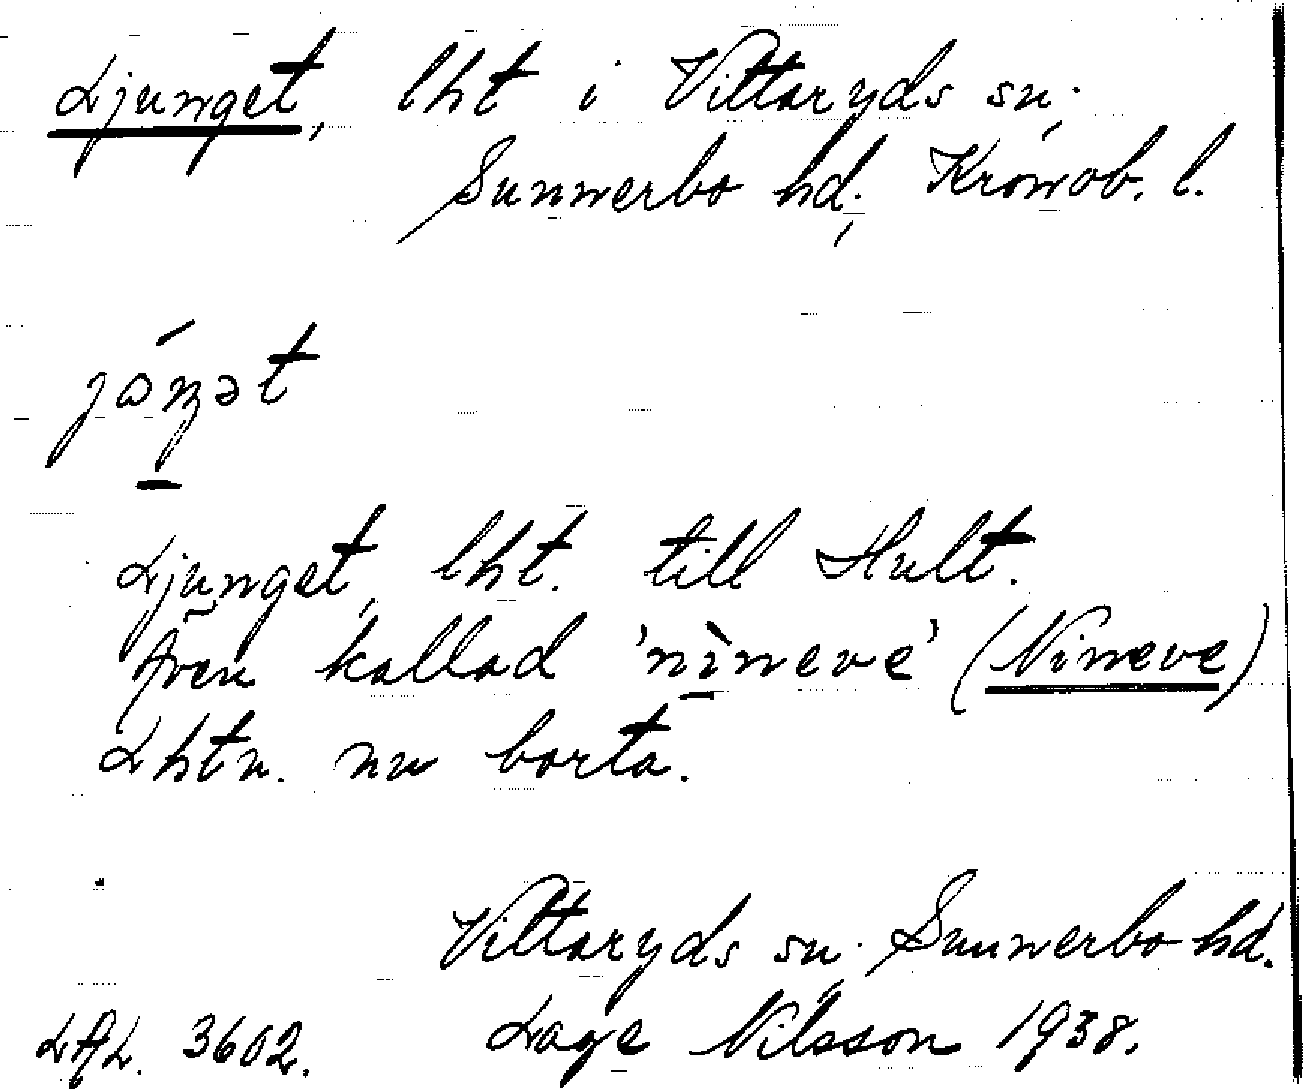 Ljunget, lht i Vittaryds sn,
Sunnerbo hd., Kronob. l.
Ljunget, lht. till Hult.
Även kallad 'nìneve' (Nineve)
Lhtn. nu borta.
Vittaryds sn, Sunnerbo hd.
Lage Nilsson 1938.
3602.